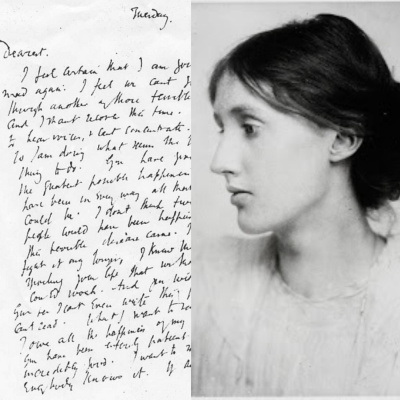 Tuesday.
Dearest.
I feel certain that I am
mad again: I feel we cant
through another of those terrible
And I shant recover this time.
to hear voices, & cant concentrate.
So I am doing what seems the
thing to do. You have
the greatest possible happiness
have been in every way all that
could be. I dont think two
people could have been happier
this terrible disease came. I
fight it any longer, I know
spoiling your life, that
could work. And you will
You see I cant even write this
cant read. What I want to
I owe all the happiness of my
You have been entirely patient
incredibly good. I want to
Everybody knows it. If